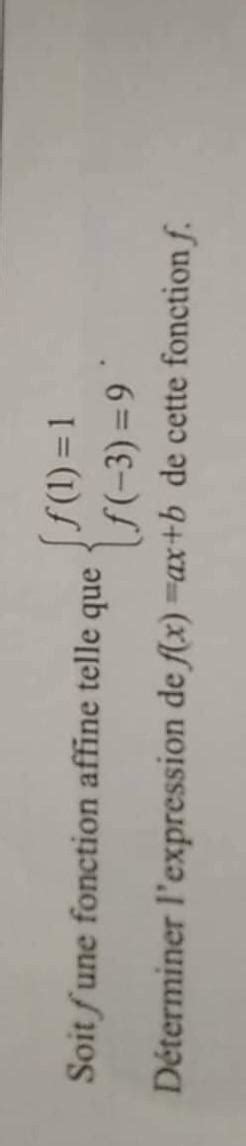 Soit f une fonction affine telle que { f(1) = 1
f(−3) = 9 .
Déterminer l'expression de f(x) =ax+b de cette fonction f.